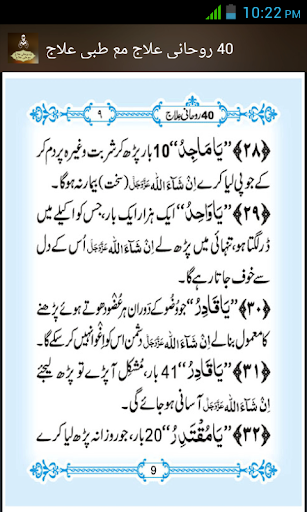 10:22 PM
40 روحانی علاج مع طبی علاج
40 روحانی علاج ۹
﴿۲۸﴾ ”یَامَاجِدُ“ 10 بار پڑھ کر شربت وغیرہ پر دم کر
کے جو پی لیا کرے اِنْ شَآءَ اللّٰہ عَزَّوَجَلَّ (سخت) بیمار نہ ہوگا۔
﴿۲۹﴾ ”یَاوَاحِدُ“ ایک ہزار ایک بار، جس کو اکیلے میں
ڈر لگتا ہو، تنہائی میں پڑھ لے اِنْ شَآءَ اللّٰہ عَزَّوَجَلَّ اُس کے دل
سے خوف جاتا رہے گا۔
﴿۳۰﴾ ”یَاقَادِرُ“ جو وُضُو کے دَوران ہر عُضْو دھوتے ہوئے پڑھنے
کا معمول بنا لے اِنْ شَآءَ اللّٰہ عَزَّوَجَلَّ دشمن اس کو اِغْوا نہیں کر سکے گا۔
﴿۳۱﴾ ”یَاقَادِرُ“ 41 بار، مُشکِل آ پڑے تو پڑھ لیجئے
اِنْ شَآءَ اللّٰہ عَزَّوَجَلَّ آسانی ہو جائے گی۔
﴿۳۲﴾ ”یَامُقْتَدِرُ“ 20 بار، جو روزانہ پڑھ لیا کرے
9